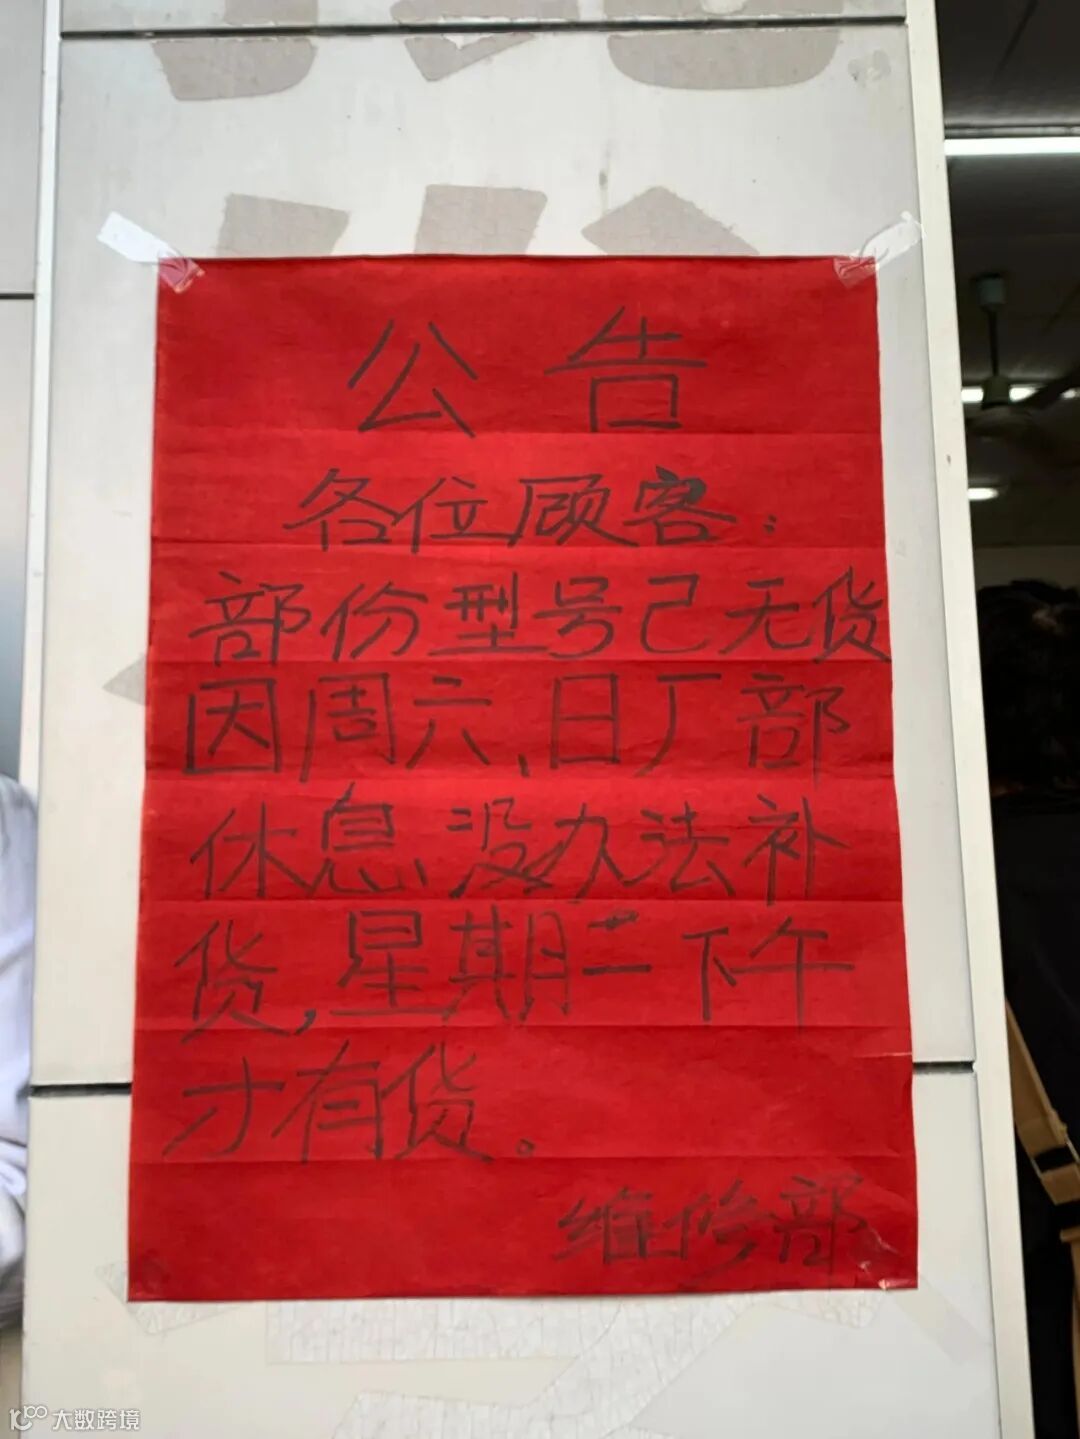 公告
各位顾客：
部份型号己无货
因周六、日厂部
休息、没办法补
货，星期二下午
才有货。
维修部
大数跨境